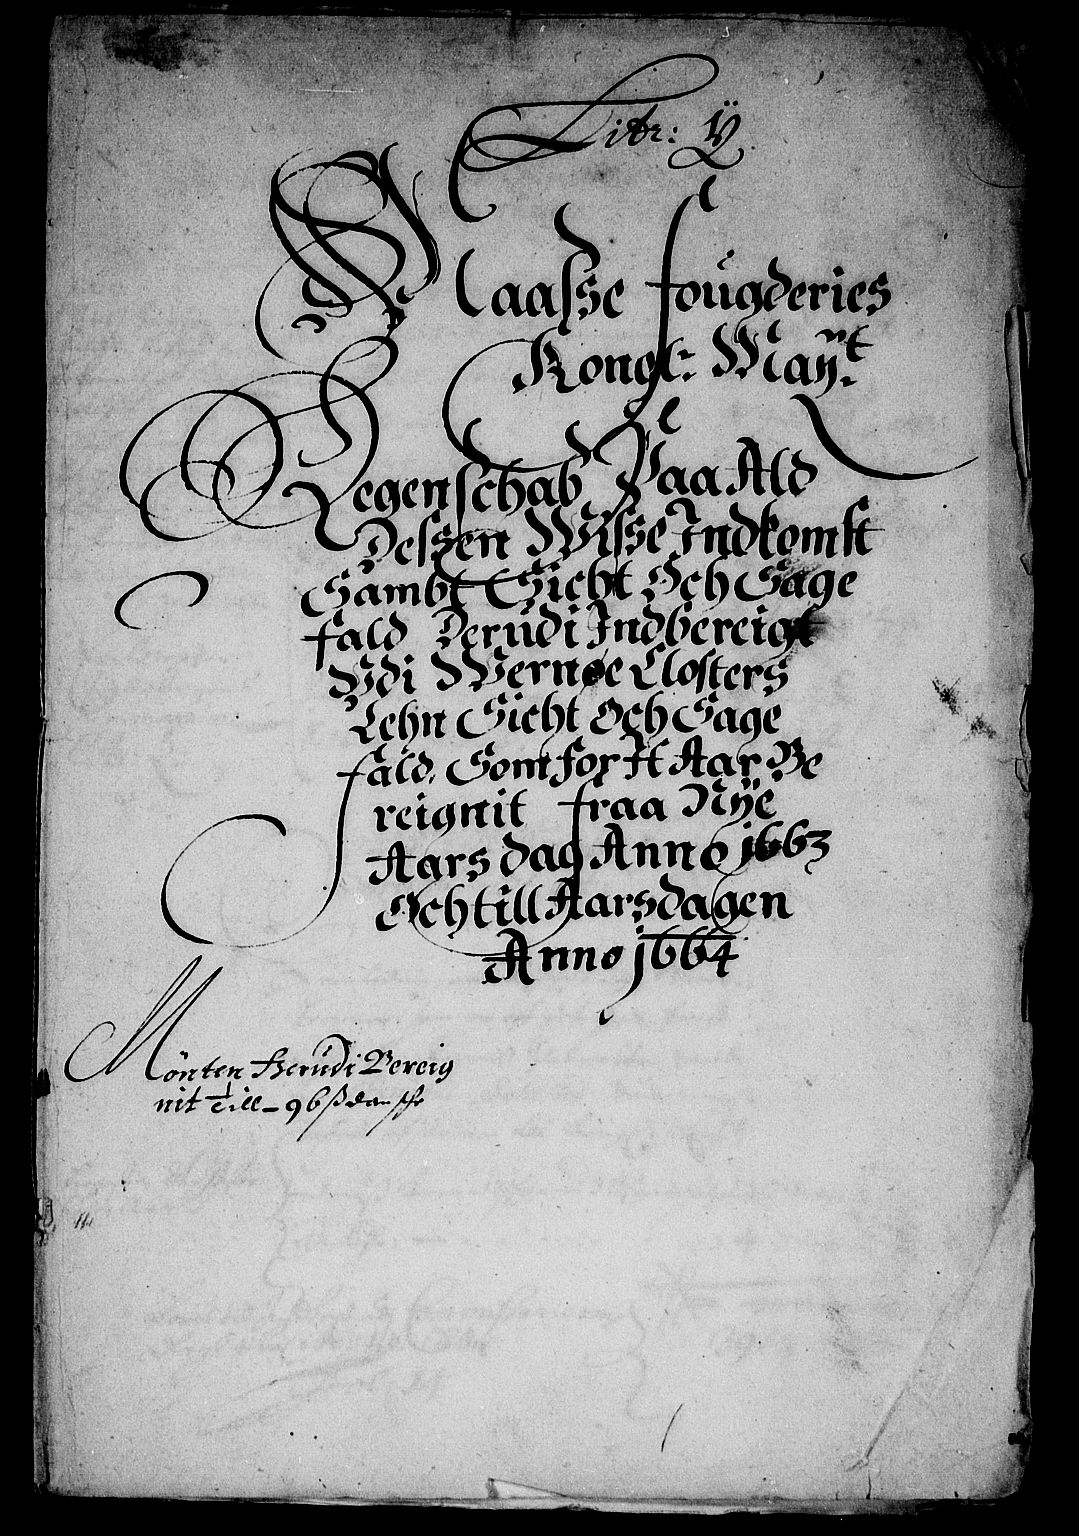 Litr: Ÿ
Maasse fougderies
Kongl: Maÿt:
Regenschab Paa Ald
Dessen Wisse Indkomst
Sambt Sicht Och Sage
fald Derudi Indbereigt
Udi Wernøe Closters
Lehn Sicht Och Sage
fald, Som for It Aar Be
reignit fraa Nÿe
Aars dag Anno 1663
Och till Aarsdagen
Anno 1664
Mönten Herudi Bereig
nit Till - 96 ß dansche